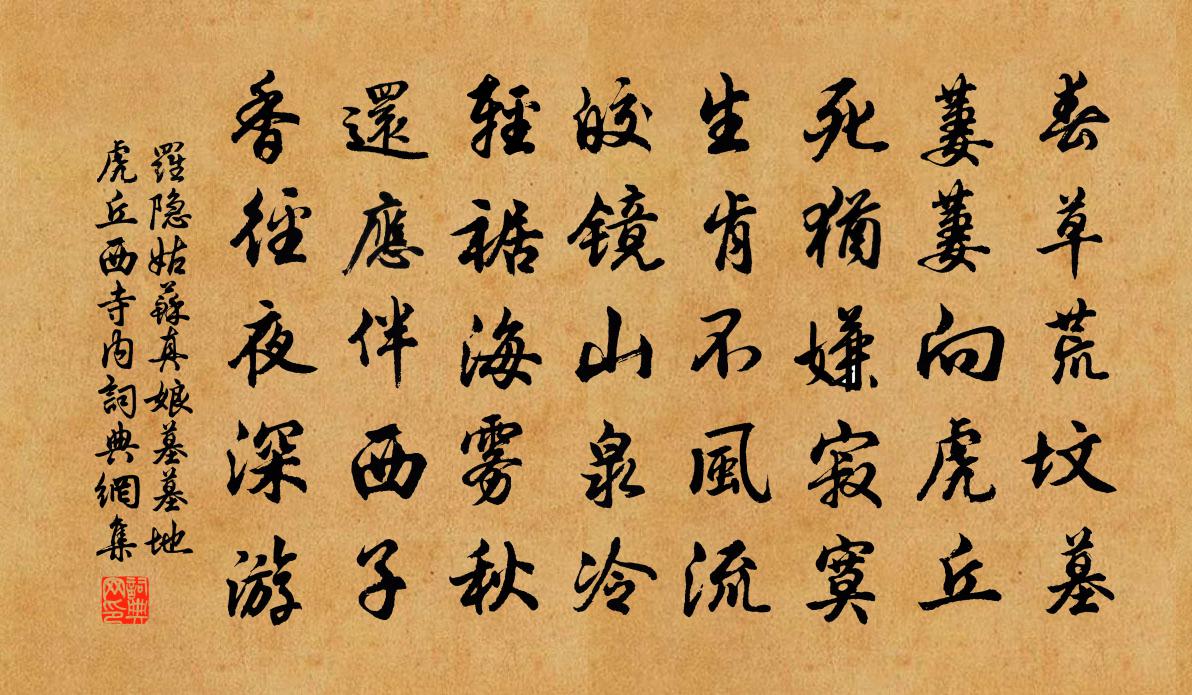 春草荒坟墓
萋萋向虎丘
死猶嫌寂寞
生肯不風流
皎镜山泉冷
輕裾海雾秋
還應伴西子
香徑夜深游
羅隐姑蘇真娘墓墓地
虎丘西寺内詞典網集
詞典网印